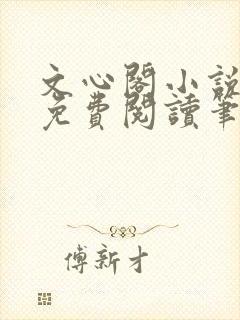 文心閣小說
免費閱讀筆
傅新才